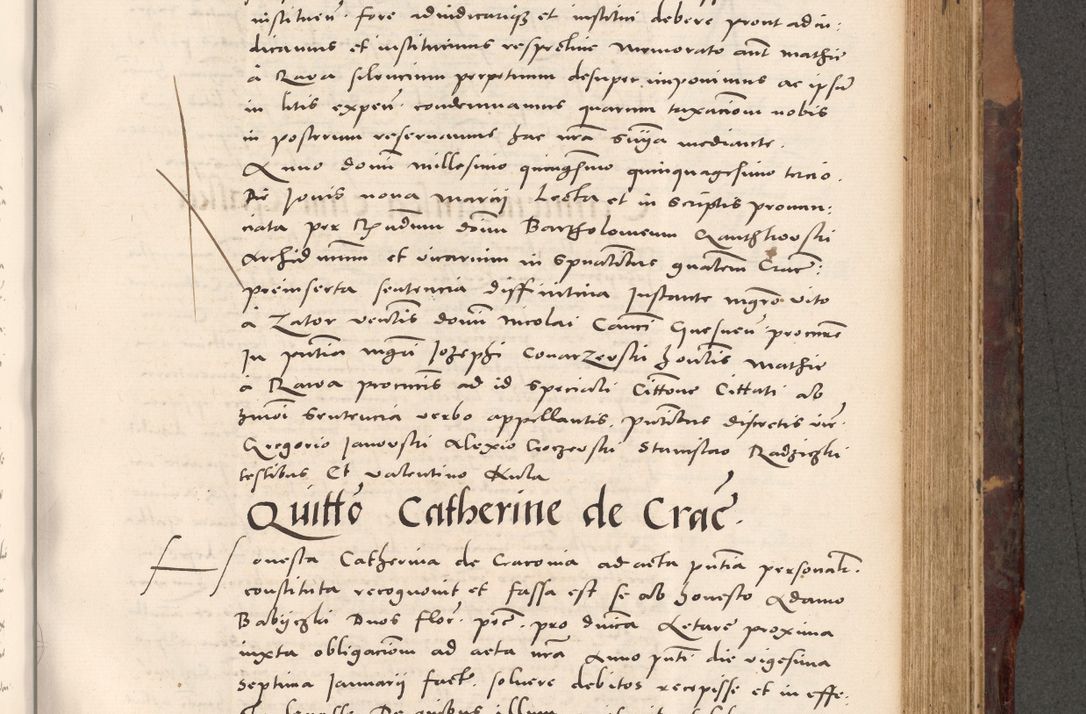 instituen. fore adiudicariqz et institui debere pront adiu:
dicamus et instituimus respective memorato ant mathie
à Rava silencium perpetuum desuper imponimus ac ipsu
in litis expen. condemnamus quarum taxaciom nobis
in posterum reservamus hac nra snia mediante.
Anno domi millesimo quingsimo quinquagesimo tercio.
Die Jovis nona Marcij Lecta et in scriptis pronun:
ciata per Rndum domi Bartholomeum Ganthkovski
Archid num et vicarium in spualibus gnalem Crac:
preinserta sentencia diffinitiva Instante mgro vito
à Zator ventis domi Nicolai Canci Gnesnen procure
In pntia mgri Jozephi Conarzevski hontis Mathie
à Rawa procuris ad id speciali Cittone Cittati ab
hmoi sentencia verbo appellantis, pntibus discretis vir.
Gregorio Janovski Alexio Goczevski Stanislao Radziczki
testibus Et valentino Kula
Quitto Catherine de Crac.
Honesta Catherina de Cracovia ad acta pntia personalr.
constituta recognovit et fassa est se ab honesto Adamo
Babijczki Duos flor. pec. pro dnica Letare proxima
iuxta obligaciom ad acta nra Anno pnti die vigesima
septima Januarij fact. solvere debitos recepisse et in effe: